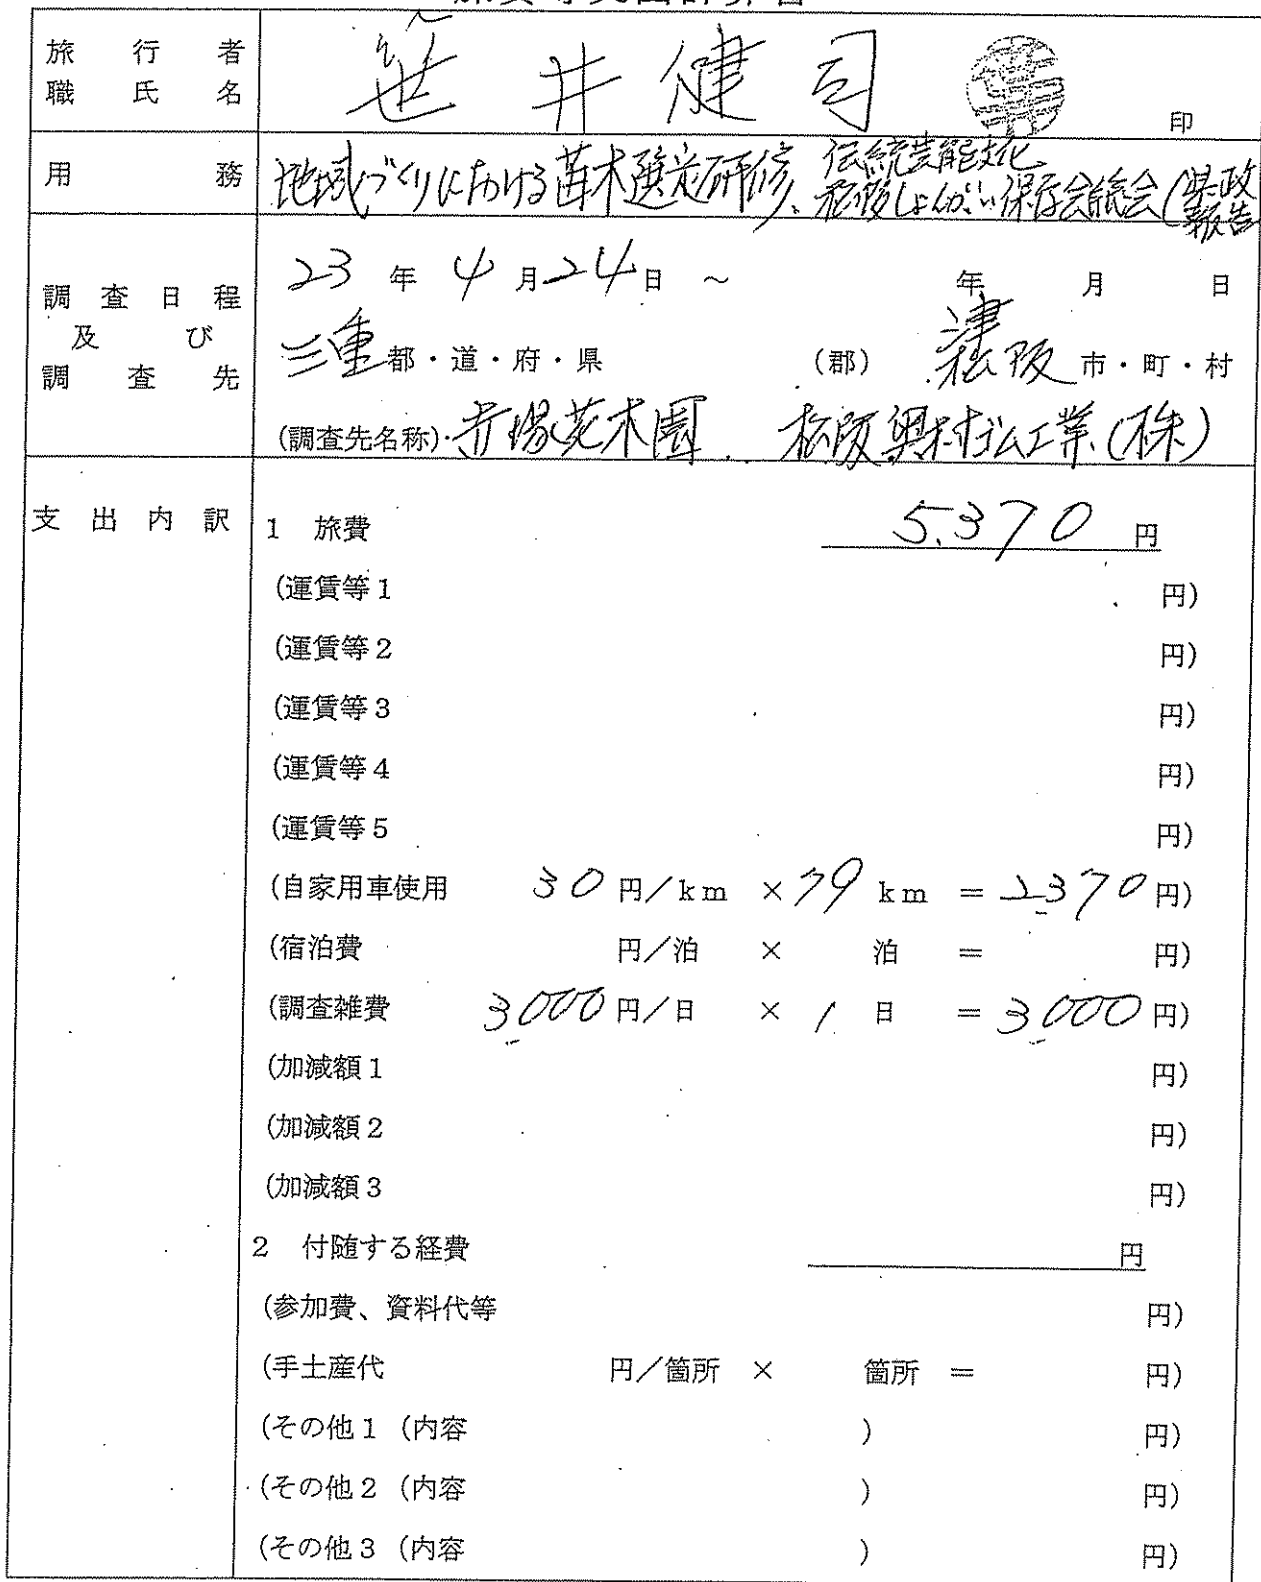 旅行者
職氏名
笹井健司
印
用務
地域づくりにおける苗木選定研修、
伝統芸能文化
松阪しょんがい保存会総会(県政
報告
調査日程
及び
調査先
23年4月24日～ 年 月 日
三重都・道・府・県 (郡) 津 松阪 市・町・村
(調査先名称) 赤塚花木園 松阪奥村ゴム工業(株)
支出内訳
1 旅費 5,370円
(運賃等1 円)
(運賃等2 円)
(運賃等3 円)
(運賃等4 円)
(運賃等5 円)
(自家用車使用 30円／km ×79km =2,370円)
(宿泊費 円／泊 × 泊 = 円)
(調査雑費 3,000円／日 × 1日 =3,000円)
(加減額1 円)
(加減額2 円)
(加減額3 円)
2 付随する経費 円
(参加費、資料代等 円)
(手土産代 円／箇所 × 箇所 = 円)
(その他1 (内容 ) 円)
(その他2 (内容 ) 円)
(その他3 (内容 ) 円)